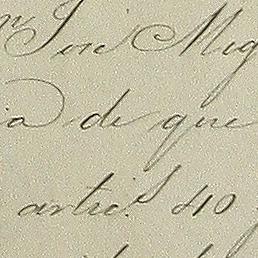 José Mig
ia de que
artic.s 410